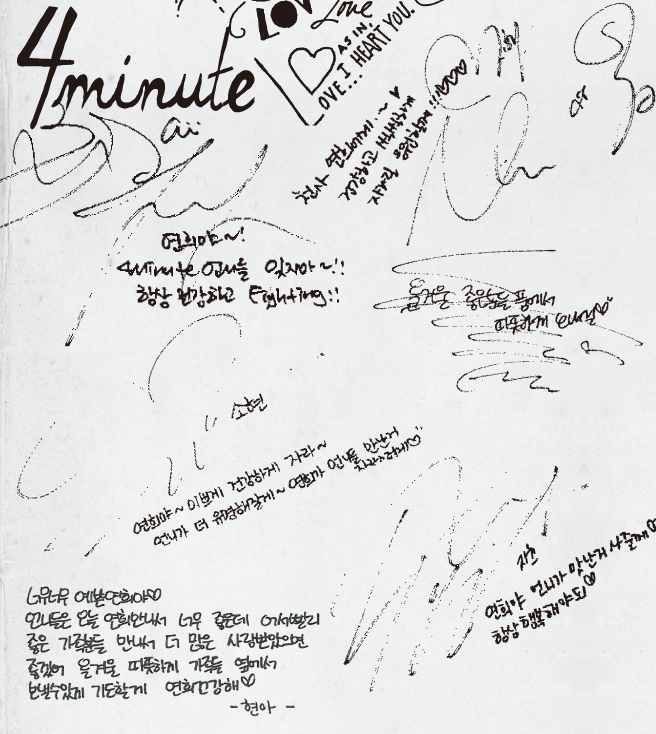 LOVE
Love
4minute
AS IN,
LOVE.. I HEART YOU.
가윤
천사 연희에게~♥
건강하고
사랑
연희야~!
4minute 언니들 잊지마~!!
항상 건강하고 Fighting!!
즐거운 좋은 품에서
따뜻하게 보내길♡
소현
연희야~ 이쁘게 건강하게 자라~
언니가 더 유명해질게~ 연희가 언니들 만난거
자랑
지윤
연희야 언니가 맛난거 사줄께
항상 행복해야되♡
너무너무 예쁜연희야♡
언니들은 오늘 연희만나서 너무 좋은데 어서빨리
좋은 가족들 만나서 더 많은 사랑받았으면
좋겠어 즐거운 따뜻하게 가족들 옆에서
보낼수있게 기도할게 연희건강해♡
-현아-